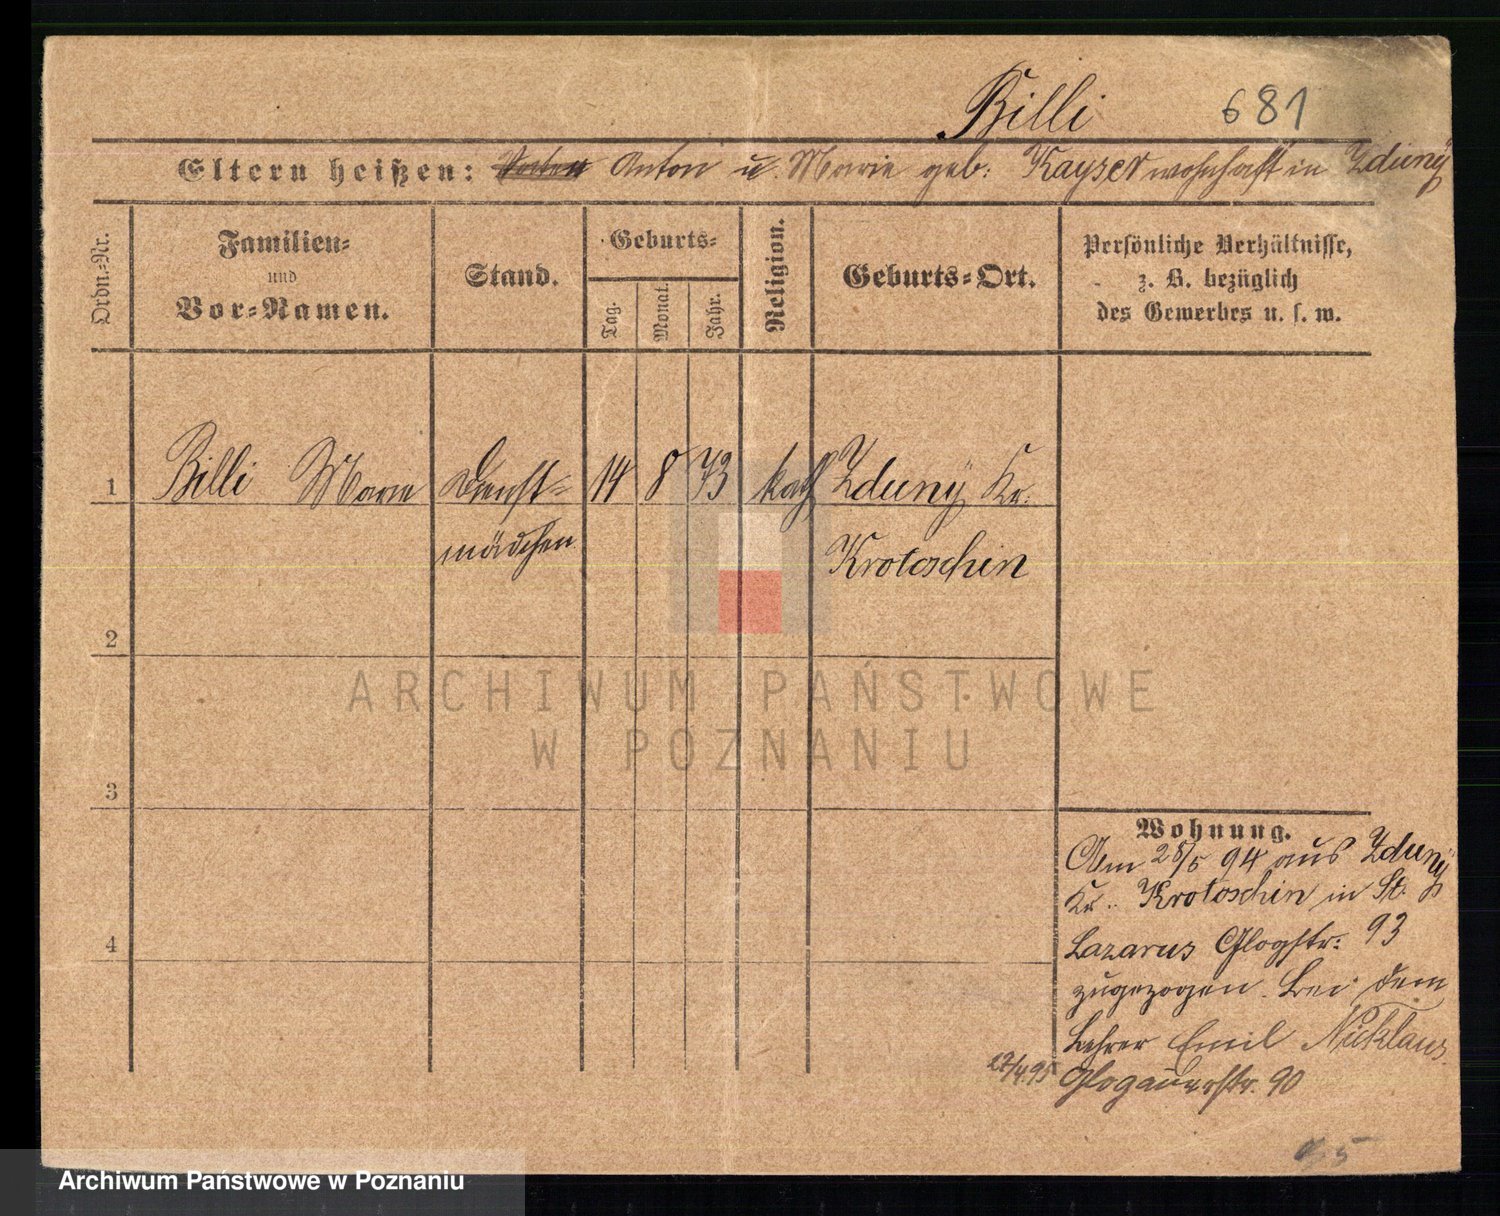 Billi 681
Eltern heißen: Anton u. Marie geb. Kayser wohnhaft in Zduny
Ordn.-Nr.
Familien-
und
Vor-Namen.
Stand.
Geburts-
Tag.
Monat.
Jahr.
Religion.
Geburts-Ort.
Persönliche Verhältnisse,
z. B. bezüglich
des Gewerbes u. s. w.
1 Billi Marie Dienst- 14 8 73 kath Zduny Kr.
mädchen Krotoschin
2
3
4
Wohnung.
Am 28/5 94 aus Zduny
Kr. Krotoschin in St.
Lazarus Glogstr: 93
zugezogen. Bei dem
Lehrer Emil Nicklaus
12/4.95 Glogauerstr. 90
ARCHIWUM PAŃSTWOWE
W POZNANIU
Archiwum Państwowe w Poznaniu